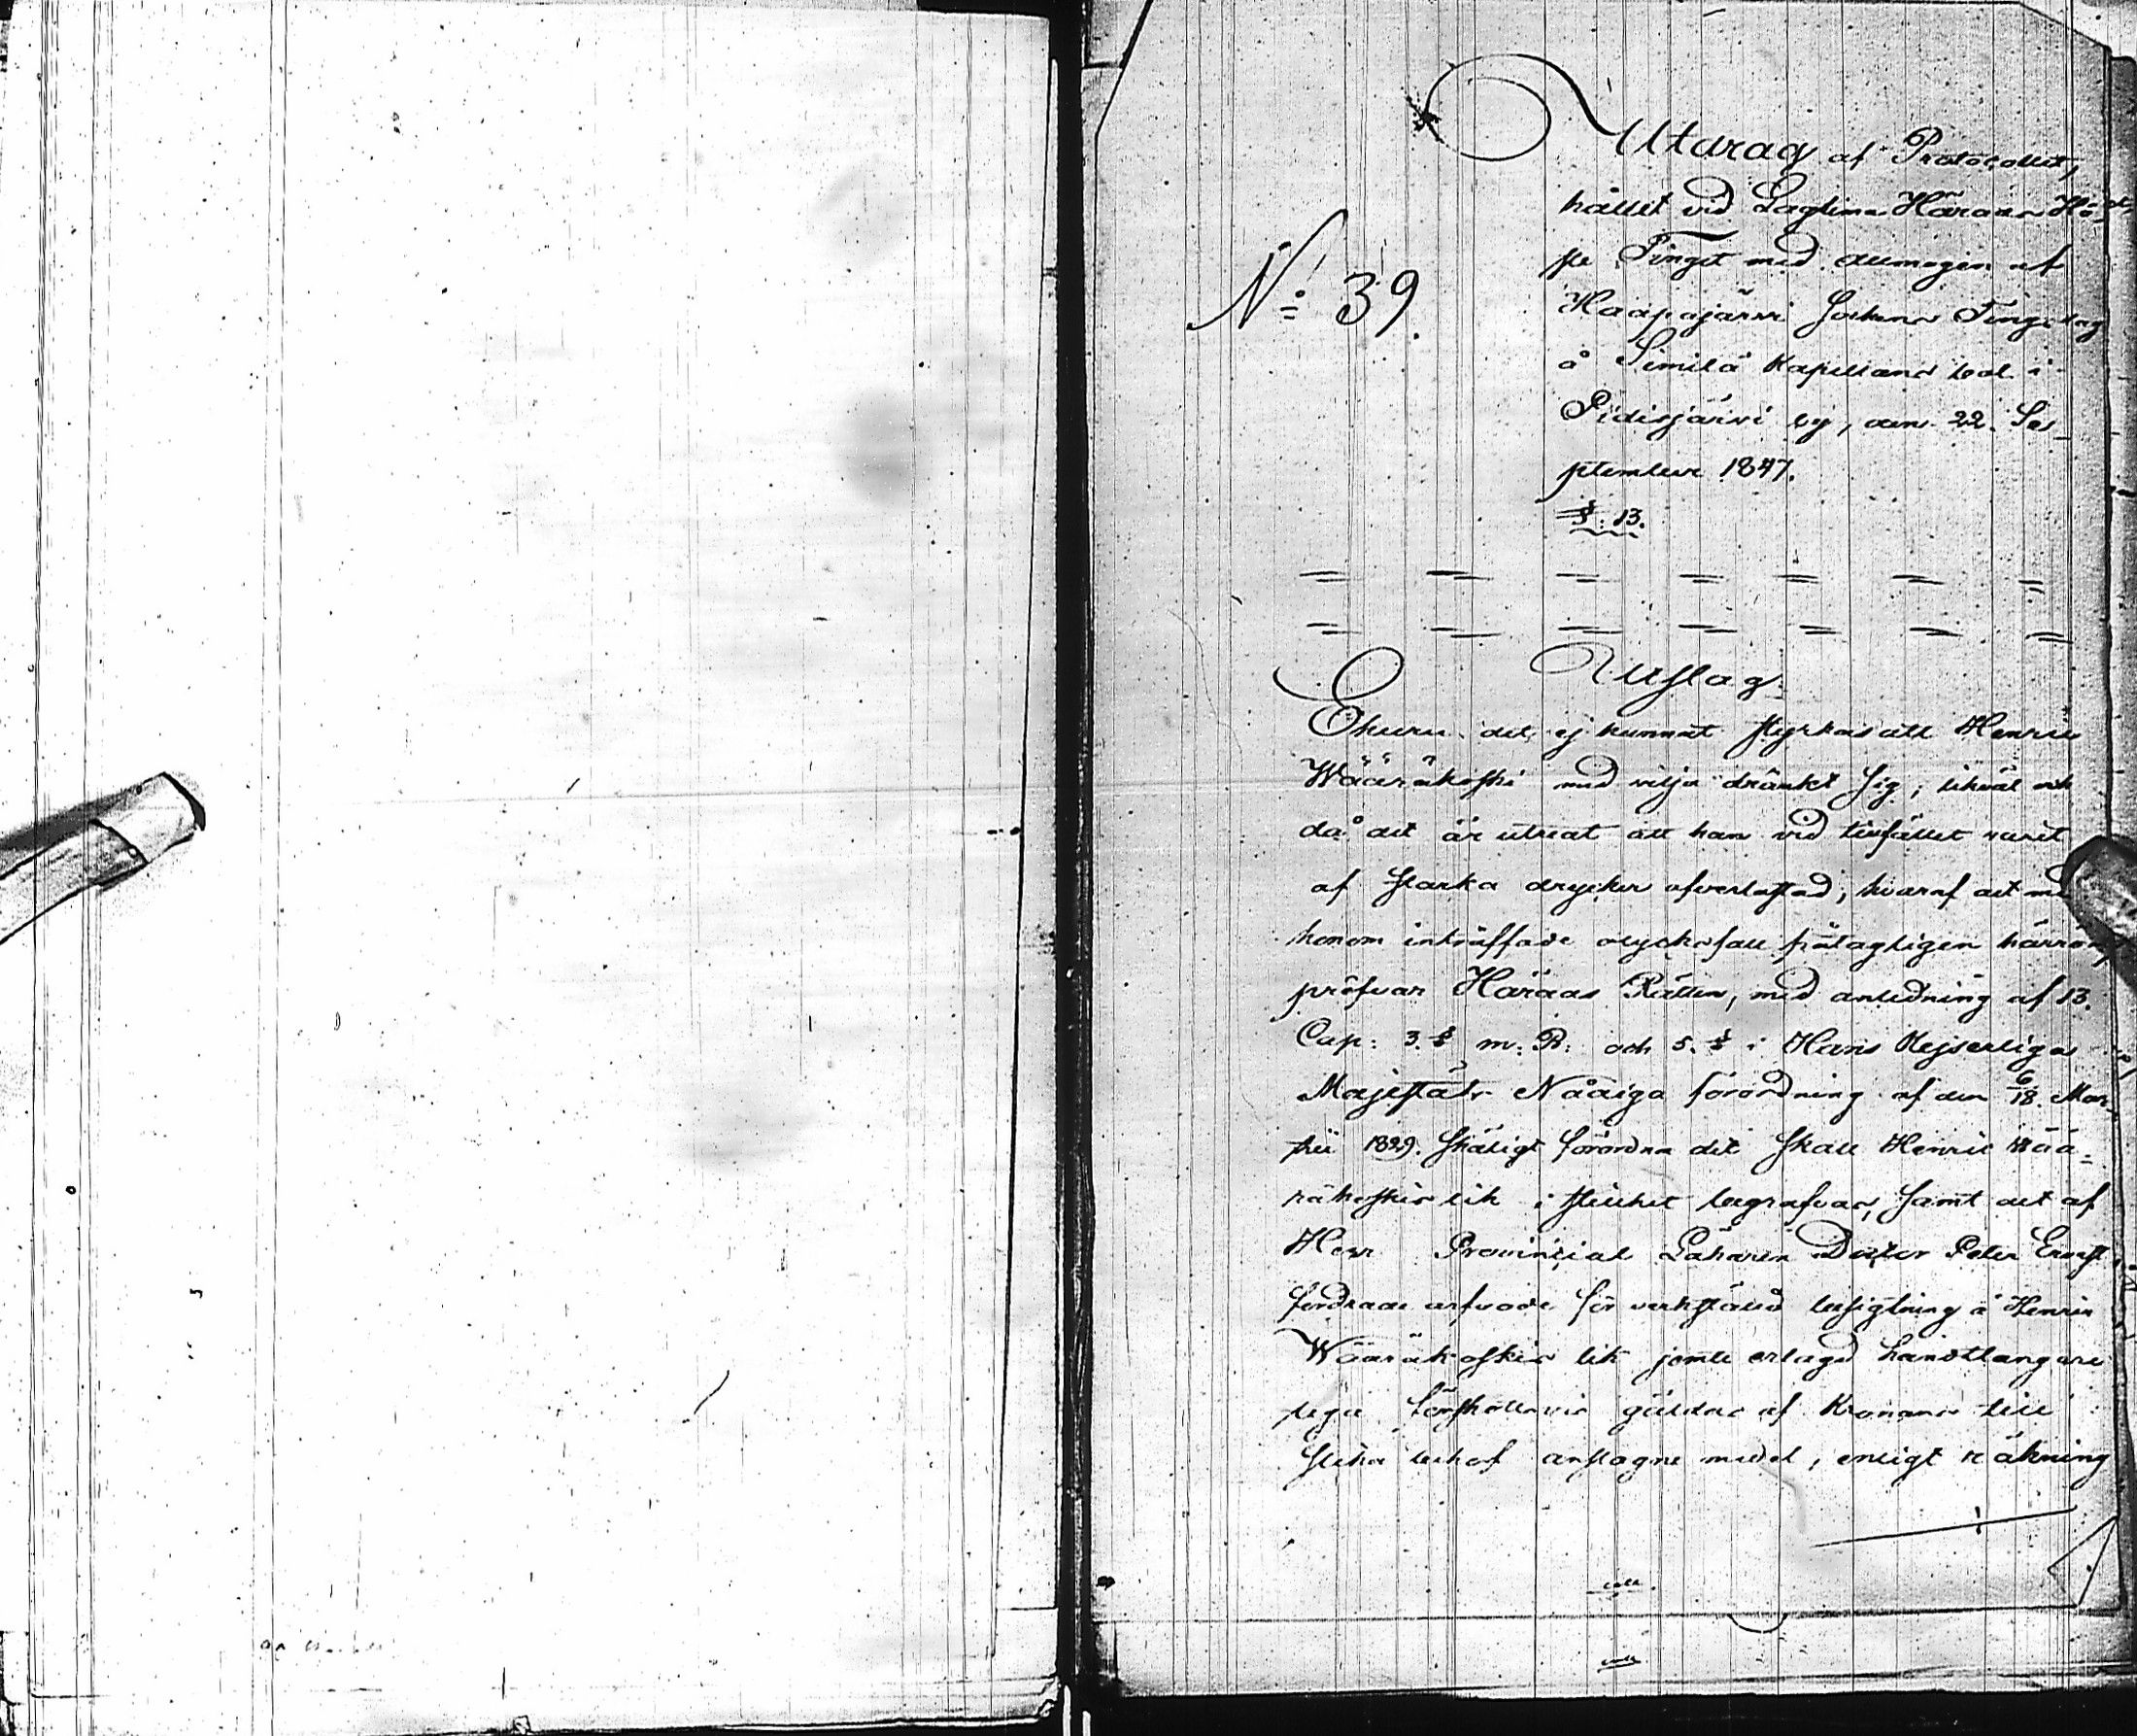 Utdrag af Protocollet,
hållet vid Lagtima Härads Hö-
ste Tinget med allmogen af
Haapajärvi Sockens Tingslag
å Similä Kapellans bol i
Pidisjärvi by, den 22. Se-
ptember 1847.
№ 39.
§. 13.
Utslag:
Ehuru det ej kunnat styrkas att Henric
Wääräkoski med vilja dränkt sig, likväl och
då det är utredt att han vid tillfället varit
af starka drycker öfverlastad, hvaraf det med
honom inträffade olycksfall påtagligen härrör,
pröfvar Härads Rätten, med anledning af 13.
Cap: 3. § M: B: och 5. § i Hans Kejserliga
Majestäts Nådiga förordning af den 6/18. Mar-
tii 1829. skäligt förordna det skall Henric Wää-
räkoskis lik i stillhet begrafvas, samt det af
Herr Provincial Läkaren Doctor Peter Ernst
fordrade arfvode för verkställd besigtning å Henric
Wääräkoskis lik jemte erlagd handtlangare
lega förskottsvis gäldas af Kronans till
slika behof anslagne medel, enligt räkning